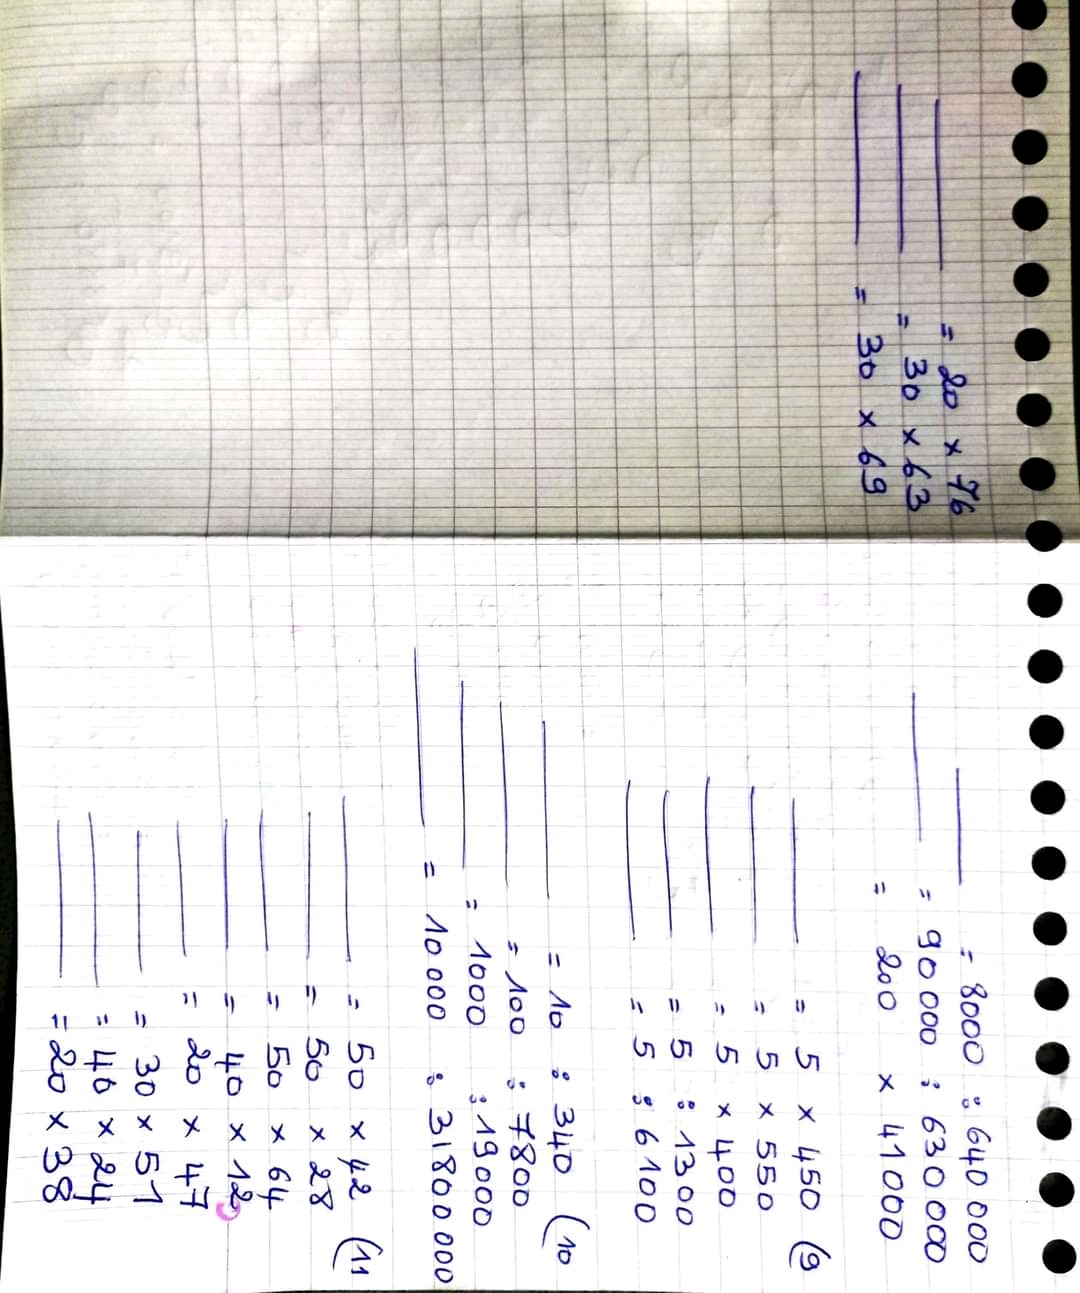 = 8000 : 640 000
= 90 000 : 630 000
= 200 × 41000
= 5 × 450 (9
= 5 × 550
= 5 × 400
= 5 : 1300
= 5 : 6100
= 10 : 340 (10
= 100 : 7800
= 1000 : 19000
= 10 000 : 31800 000
= 50 × 42 (11
= 50 × 28
= 50 × 64
= 40 × 12
= 20 × 47
= 30 × 51
= 40 × 24
= 20 × 38
= 20 × 76
= 30 × 63
= 30 × 69